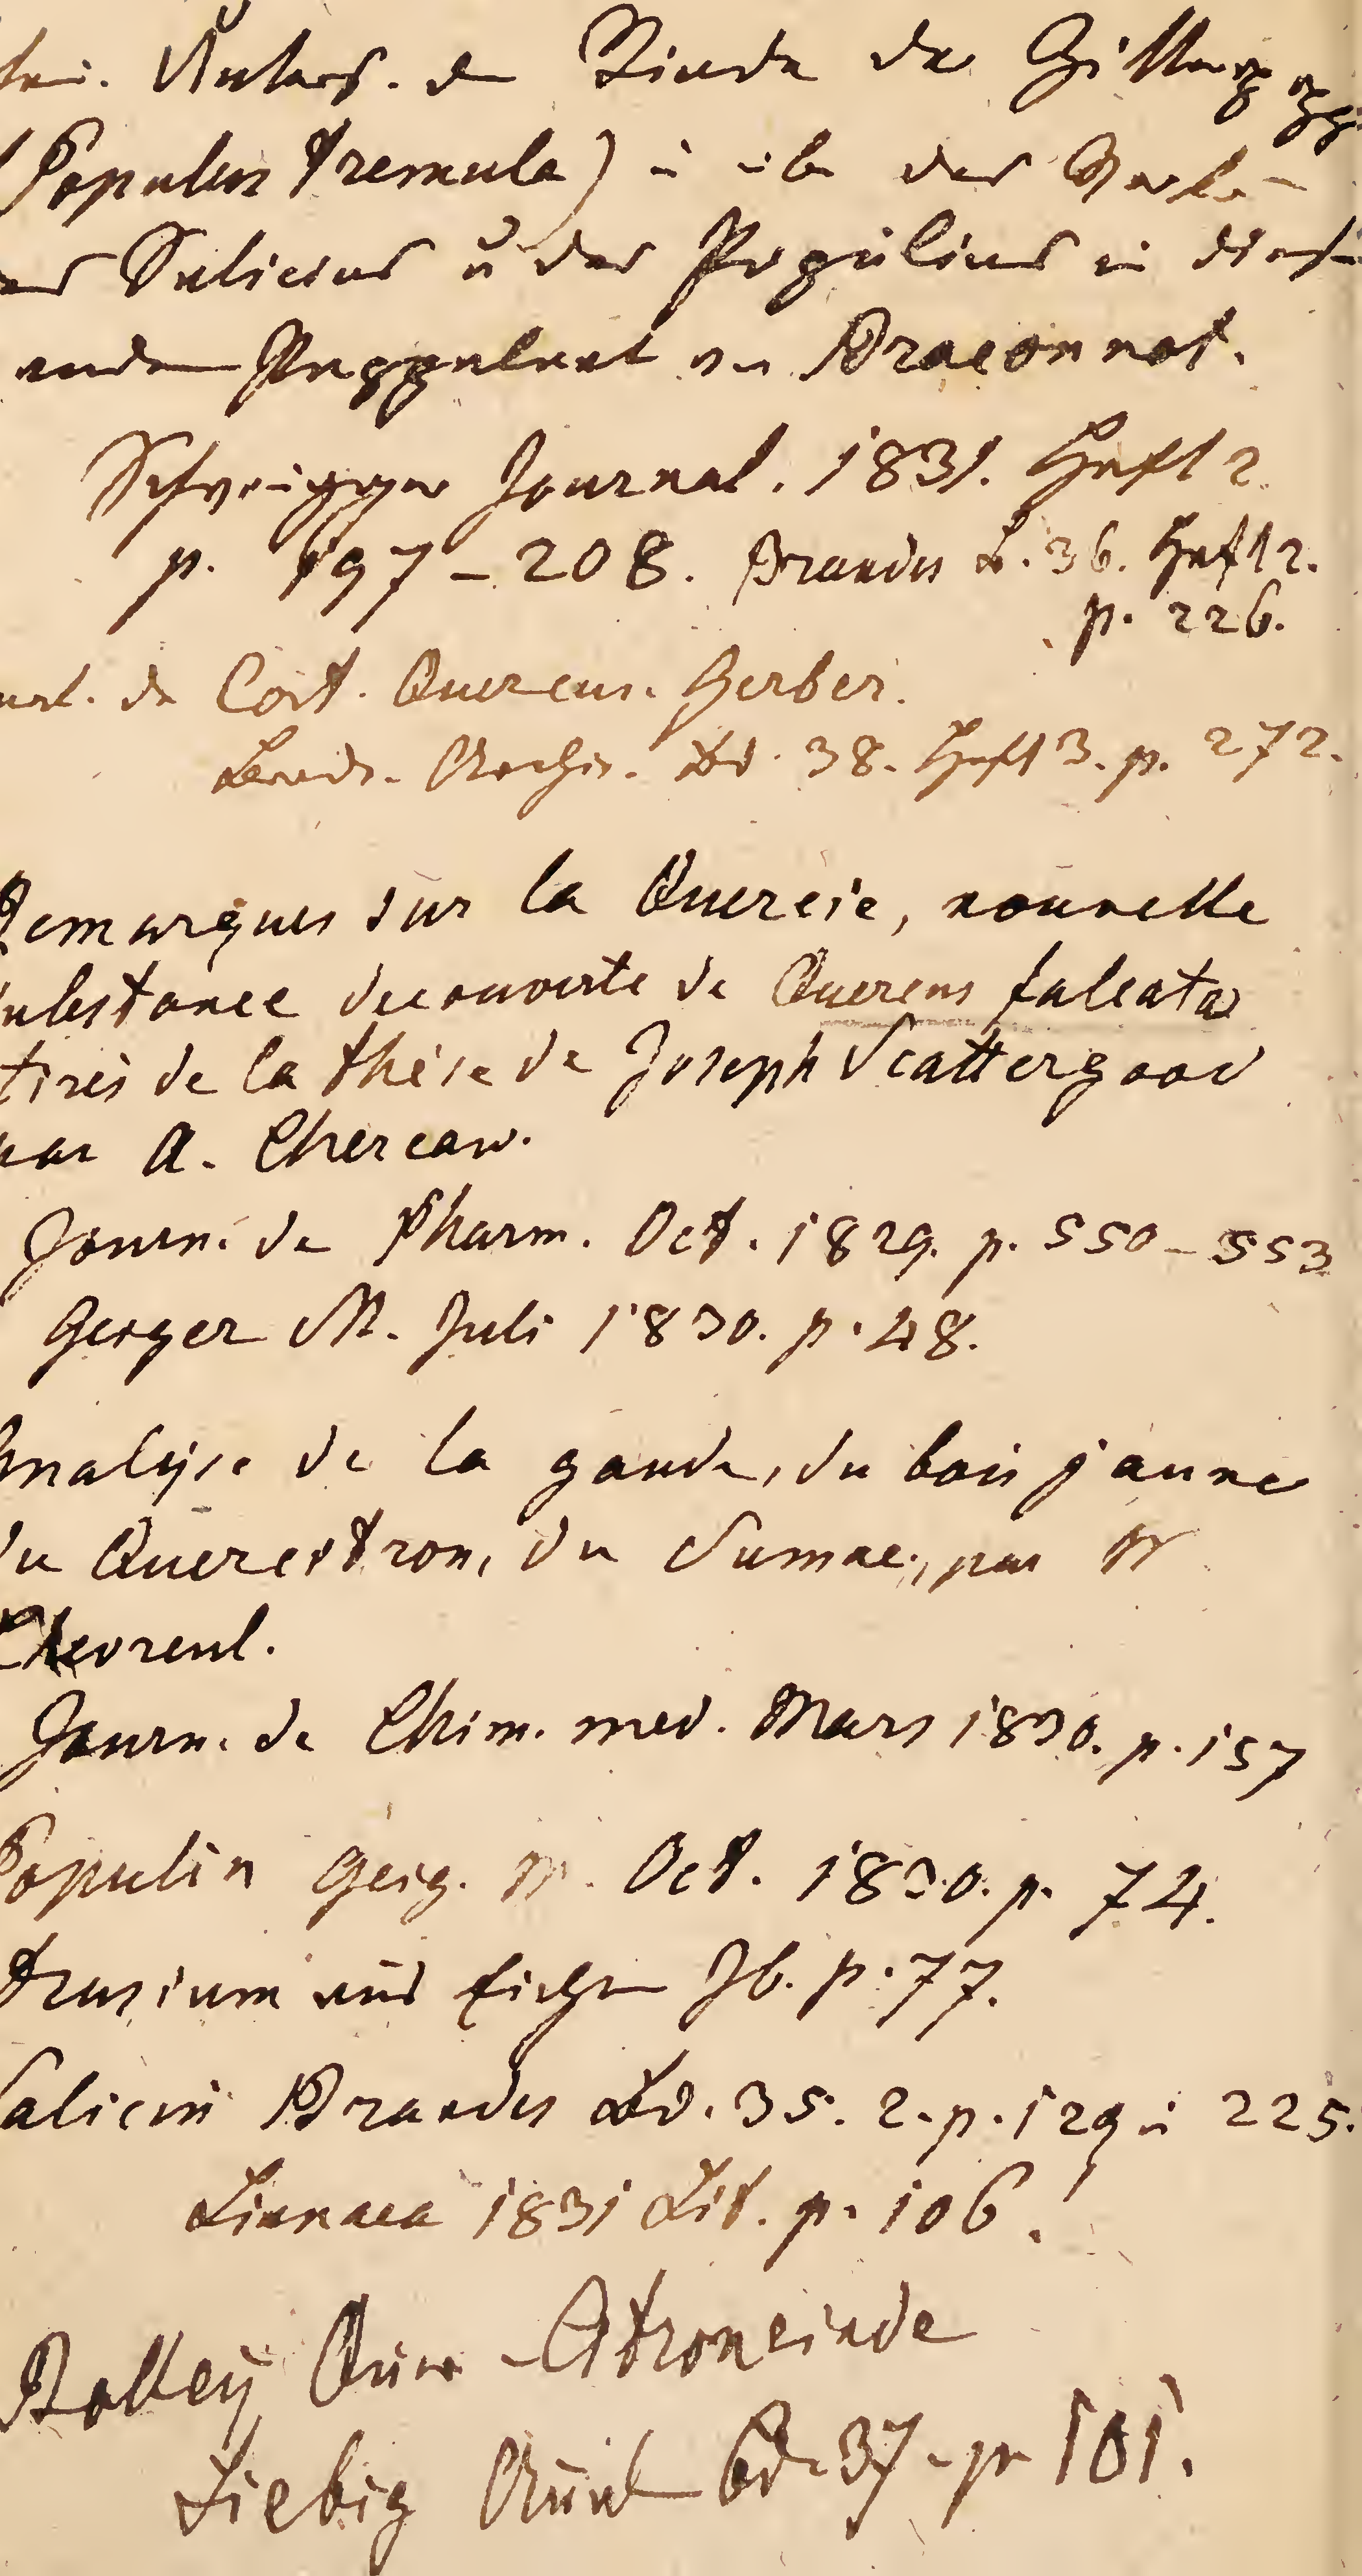 Unters. d. Rinde der Zitterpappel
(Populus tremula) u. üb. das Vorkom̄
des Salicins u. des Populins in dersel
andern Pappelart von Braconnot.
Schweigger Journal. 1831. Heft 2.
p. 197–208. Brandes B. 36. Heft 2.
p. 226.
de Cort. Quercus. Gerber.
Brands. Archiv. Bd. 38. Heft 3. p. 272.
Remarques sur la Quercie, nouvelle
substance decouverte de Quercus falcata
tirès de la thèse de Joseph Scattergood
par A. Chereau.
Journ. de Pharm. Oct. 1829. p. 550–553
Geiger M. Juli 1830. p. 48.
Analyse de la gaude, du bois jaune
du Quercitron, du Sumac, par M
Chevreul.
Journ. de Chim. med. Mars 1830. p. 157
Populin Geig. M. Oct. 1830. p. 74.
aus Eichen Ib. p. 77.
Salicin Brandes Bd. 35. 2. p. 129 u. 225.
Linnaea 1831 Lit. p. 106!
Bolley
Liebig Bd. 37. p. 101.